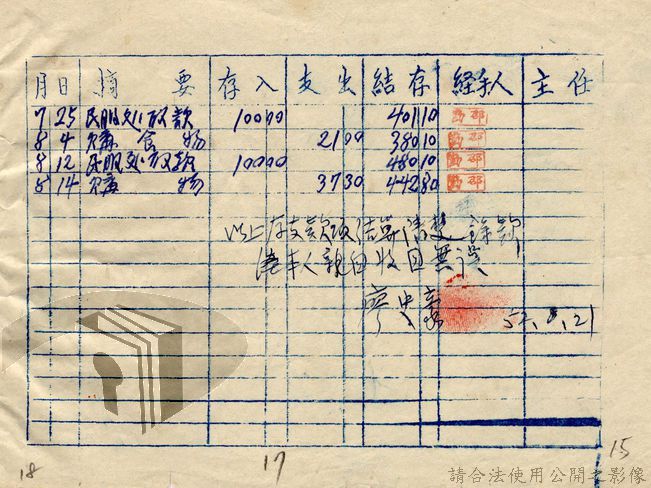 月 日 摘要 存入 支出 結存 経手人 主任
7 25 民服处放款 10000 40110
8 4 购食物 2100 38010
8 12 民服处放款 10000 48010
8 14 购物 3730 44280
以上存支款項結算清楚餘款
本人親自收回無誤
廖史豪
52.8.21
18 17 15
請合法使用公開之影像